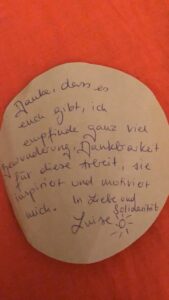 Danke, dass es
euch gibt, ich
empfinde ganz viel
Bewunderung, Dankbarkeit
für diese Arbeit, sie
inspiriert und motiviert
mich. In Liebe und
Solidarität
Luise